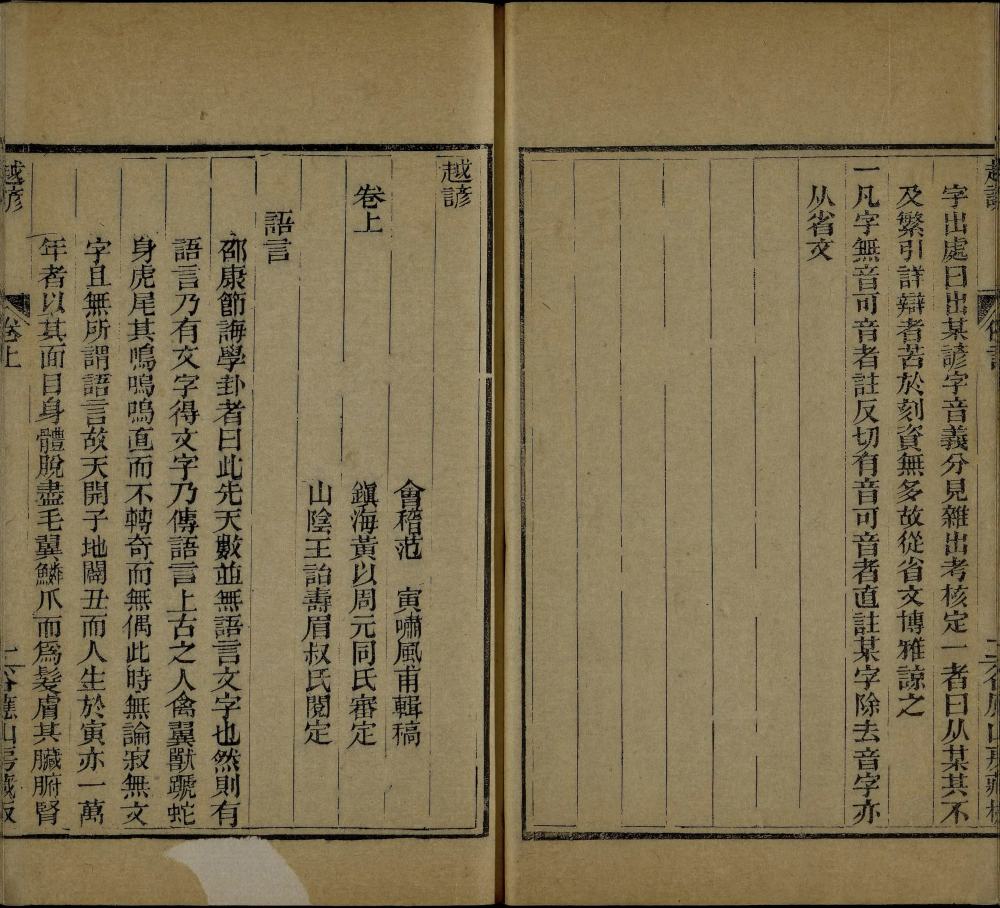 字出處曰出某諺字音義分見雜出考核定一者曰从某其不
及繁引詳辯者苦於刻資無多故從省文博雅諒之
一凡字無音可音者註反切有音可音者直註某字除去音字亦
从省文
越諺
卷上
會稽范　寅嘯風甫輯稿
鎭海黃以周元同氏審定
山陰王詒壽眉叔氏閱定
語言
邵康節誨學卦者曰此先天數並無語言文字也然則有
語言乃有文字得文字乃傳語言上古之人禽翼獸蹏蛇
身虎尾其鳴嗚嗚直而不轉奇而無偶此時無論寂無文
字且無所謂語言故天開子地闢丑而人生於寅亦一萬
年者以其面目身體脫盡毛翼鱗爪而爲髮膚其臟腑腎
越諺
卷上